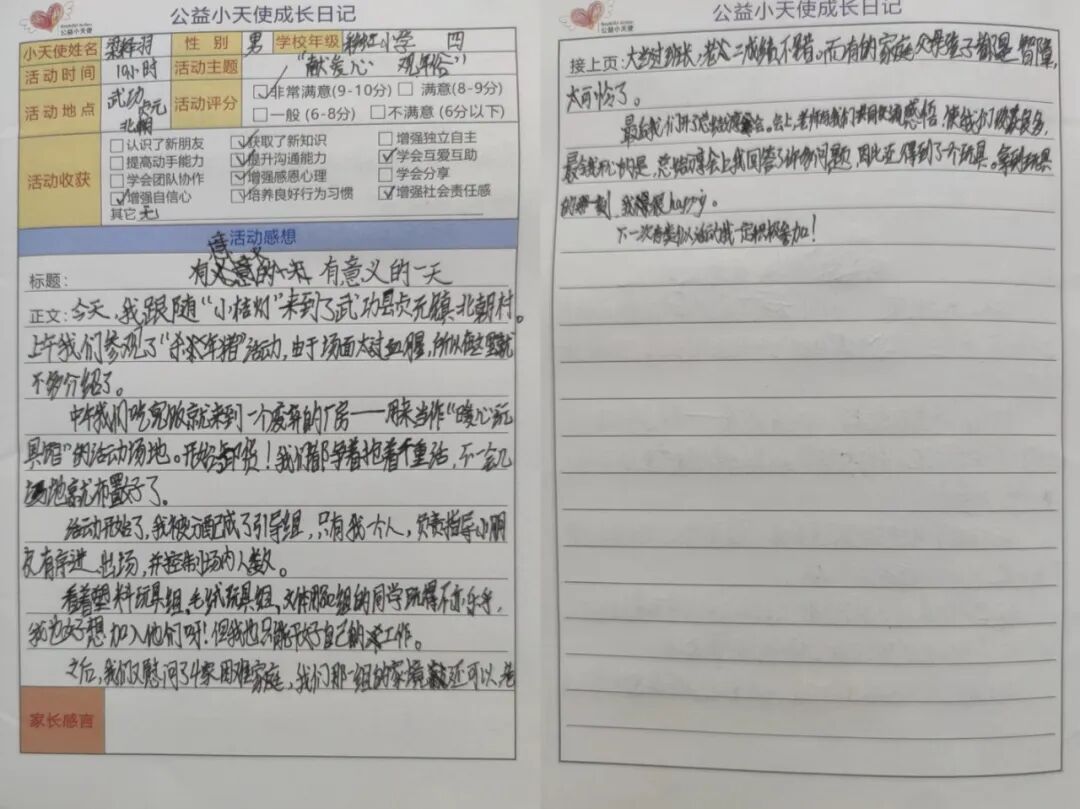 公益小天使
公益小天使成长日记
小天使姓名 梁梓羽 性别 男 学校年级 小学 四
活动时间 10小时 活动主题 “献爱心 观年俗”
活动地点 武功贞元北朝 活动评分 ☑非常满意(9-10分) □满意(8-9分)
□一般(6-8分) □不满意(6分以下)
活动收获
□认识了新朋友 ☑获取了新知识 □增强独立自主
□提高动手能力 ☑提升沟通能力 ☑学会互爱互助
□学会团队协作 ☑增强感恩心理 □学会分享
☑增强自信心 ☑培养良好行为习惯 ☑增强社会责任感
其它 无
活动感想
标题: 有意义的一天
正文: 今天,我跟随“小桔灯”来到了武功县贞元镇北朝村。
上午我们参观了“杀年猪”活动,由于场面太过血腥,所以在这里就
不多介绍了。
中午我们吃完饭就来到一个废弃的厂房——用来当作“暖心玩
具店”的活动场地。开始卸货!我们都争着抢着干重活,不一会儿
场地就布置好了。
活动开始了,我被分配成了引导组,只有我一个人,负责指导小朋
友有序进、出场,并控制场内人数。
看着塑料玩具组、毛绒玩具组、文体用品组的同学玩得不亦乐乎,
我也好想加入他们呀!但我也只能干好自己的工作。
之后,我们又慰问了4家困难家庭,我们那一组的家境还可以,老
家长感言
公益小天使
公益小天使成长日记
接上页: 大当过班长,老二成绩不错。而有的家庭父母孩子都是智障,
太可怜了。
最后我们开了总结会。会上,老师与我们共同交流感悟,使我们收获良多,
最令我开心的是,总结会上我回答了许多问题,因此还得到了一个玩具。拿到玩具
的那一刻,我很happy。
下一次有类似活动我一定积极参加!